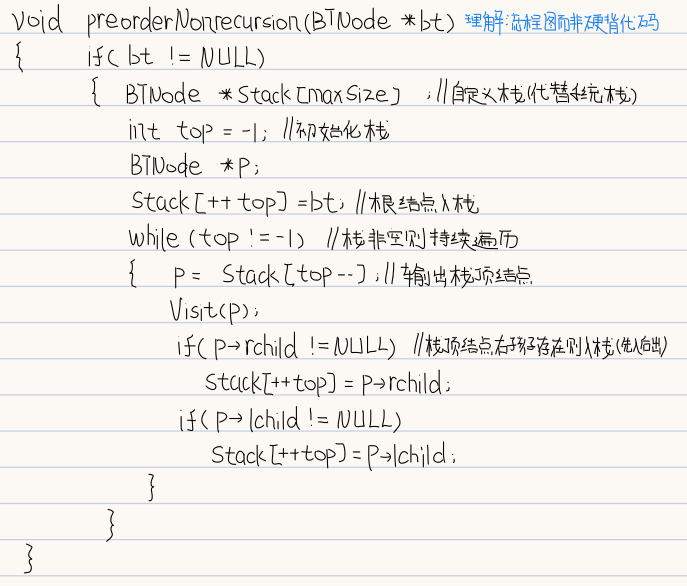 void preorderNonrecursion(BTNode *bt) 理解流程图而非硬背代码
{ if( bt != NULL)
{ BTNode *Stack[maxSize] ;//自定义栈(代替系统栈)
int top = -1; //初始化栈
BTNode *p;
Stack[++ top] =bt; //根结点入栈
while (top != -1) //栈非空则持续遍历
{ p = Stack[top--] ;//输出栈顶结点
Visit(p);
if( p→rchild != NULL) //栈顶结点右孩子存在则入栈(先入后出)
Stack[++top] = p→rchild;
if( p→lchild != NULL)
Stack[++top] = p→lchild;
}
}
}